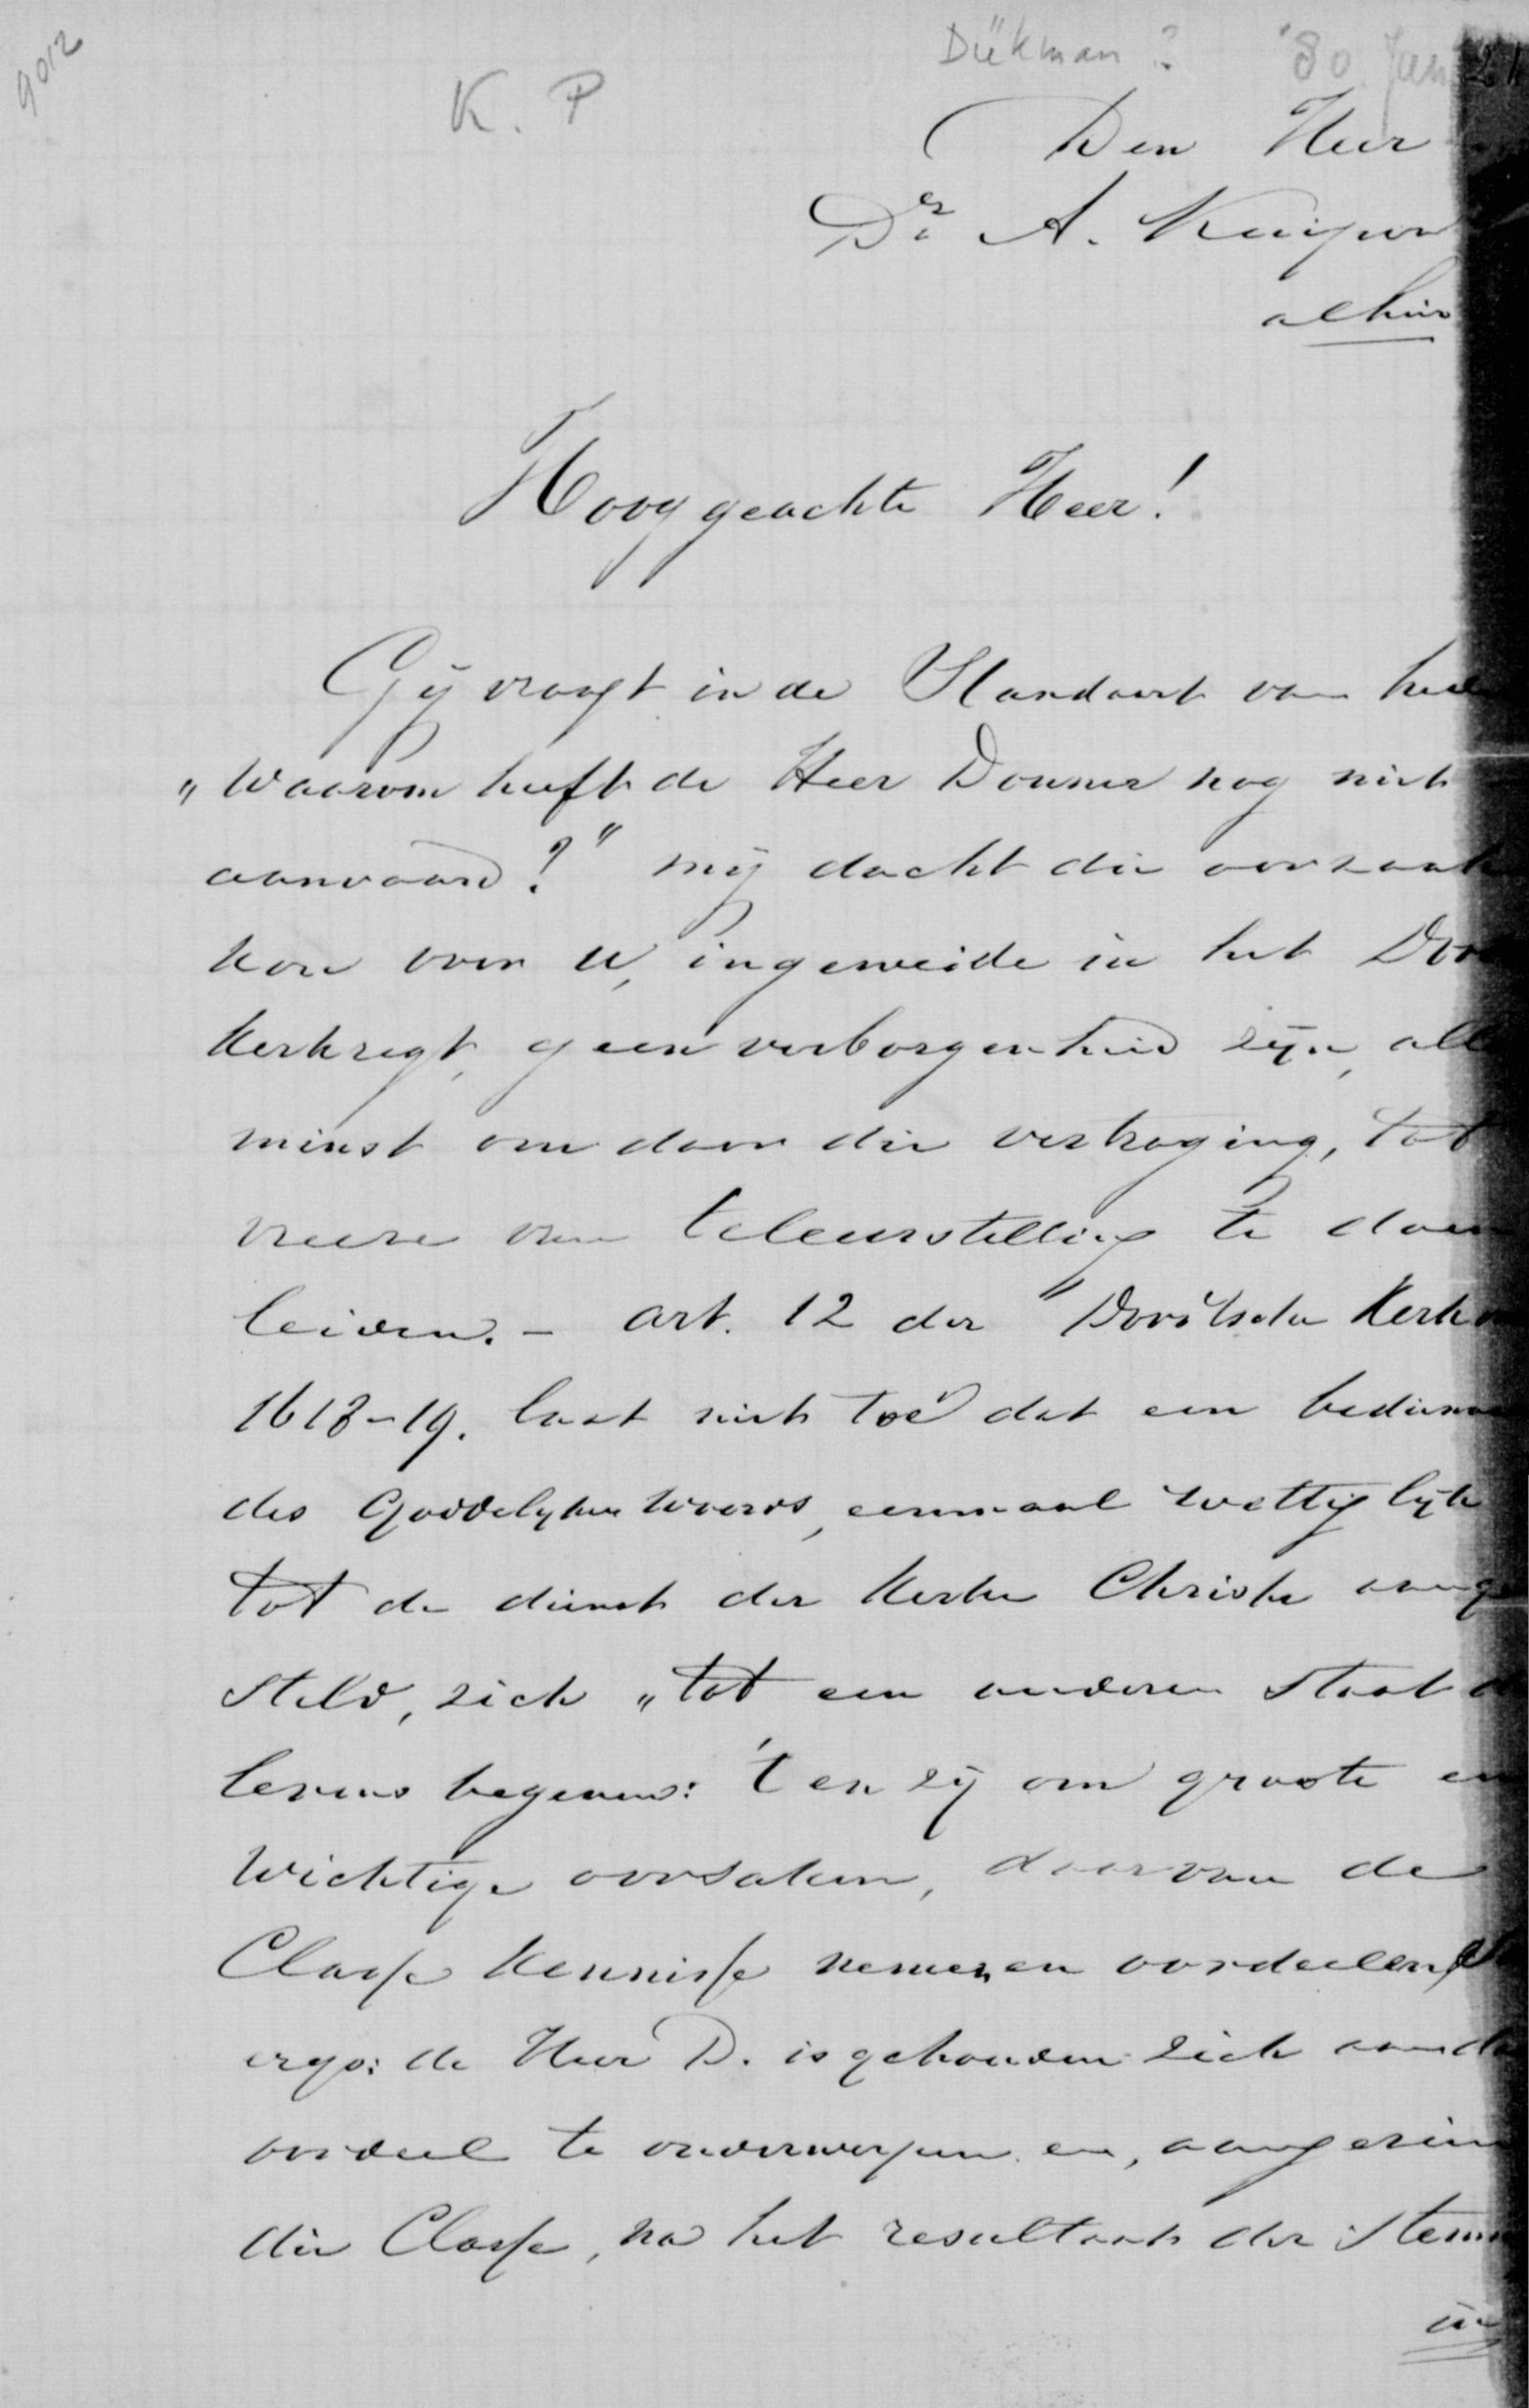 9012
Dükman? '80 Jun 21
K. P
Den Heer
Dr. A. Kuiper
alhier
Hooggeachte Heer!
Gij vraagt in de Standaart van hed
"Waarom heeft de Heer Donner nog niet
aanvaard?" mij dacht die oorzaak
kon voor U, ingeweide in het Dor
Kerkregt, geen verborgenheid zijn, all
minst om door die vertraging, tot
vreeze van teleurstelling te doen
leiden. - art. 12 der "Dordtsche Kerko
1618-19. laat niet toe dat een bediena
des Goddelyken Woords, eenmaal wettiglijk
tot de dienst der Kerke Christi aange
steld, zich "tot een anderen Staat d
levens begeven: 't en zij om groote en
wichtige oorsaken, daarvan de
Classe kennisse nemen en oordeelen sl
ergo: de Heer D. is gehouden zich aan da
oordeel te onderwerpen en, aangezien
die Classe, na het resultaat der stemm
in